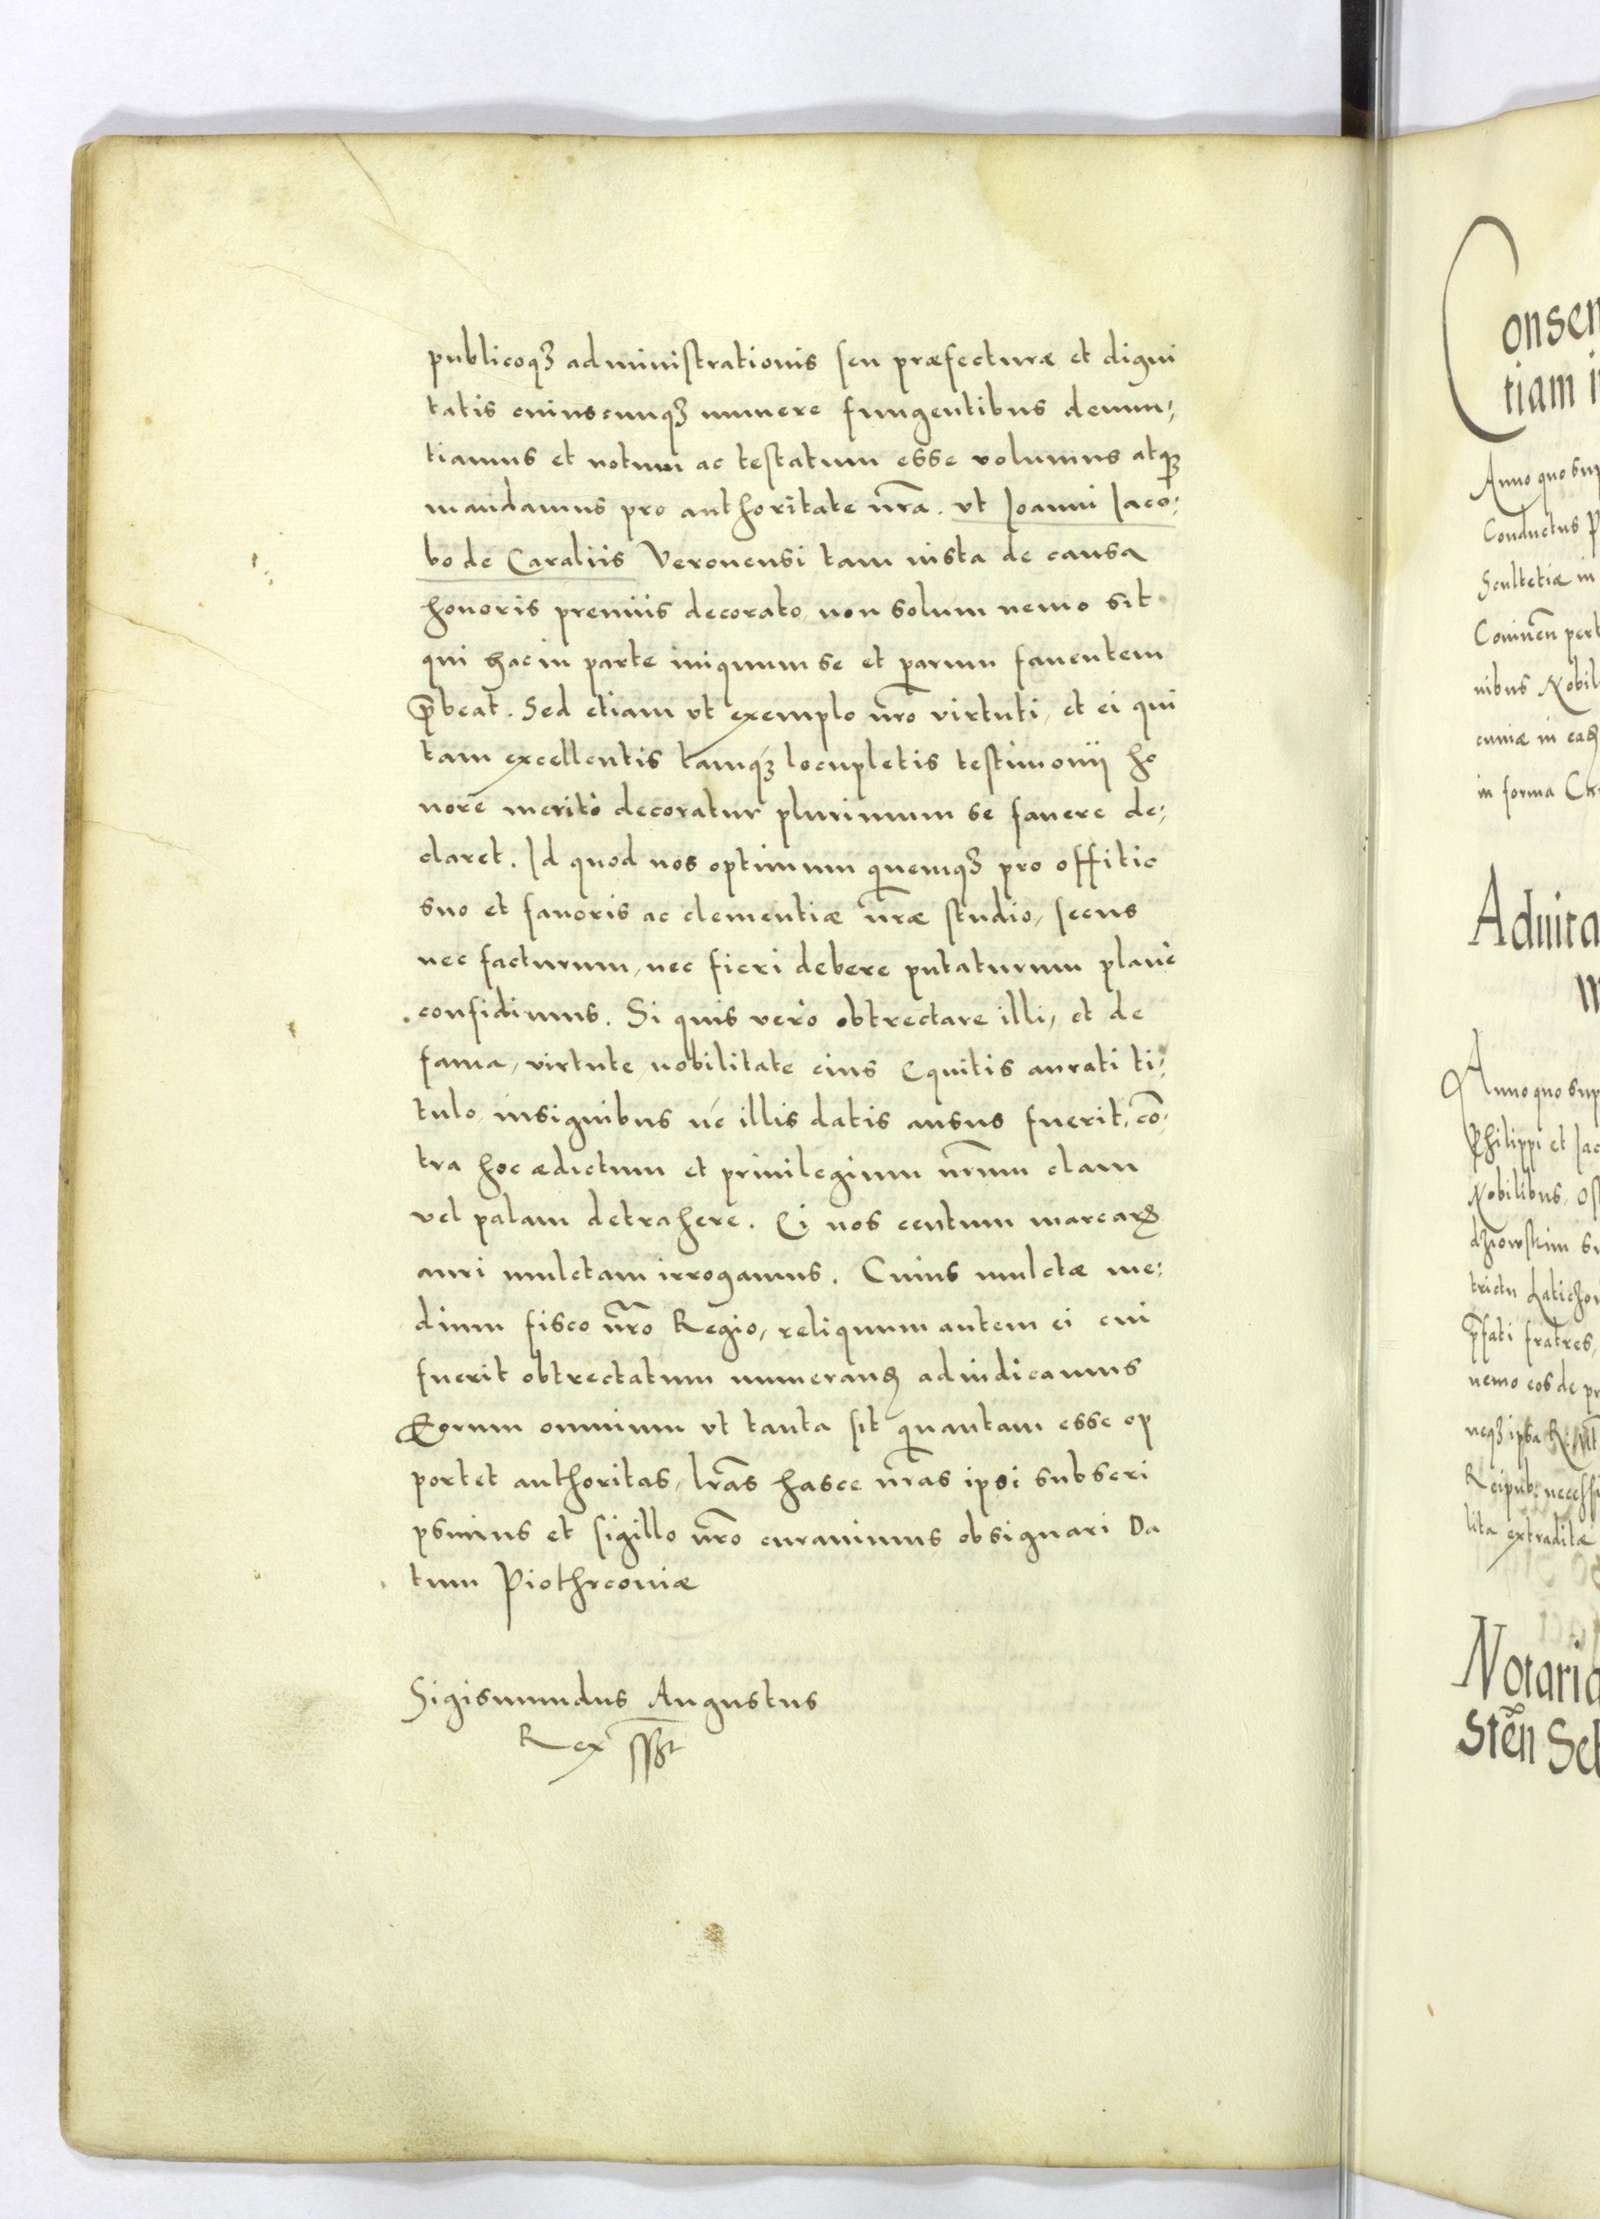 publicoqȝ administrationis seu præfecturæ et digni
tatis cuiuscunqȝ munere fungentibus denun⸗
tiamus et notum ac testatum esse volumus atqȝ
mandamus pro authoritate nr̃a. vt Ioanni Iaco⸗
bo de Caraliis Veronensi tam iusta de causa
honoris premiis decorato, non solum nemo sit
qui hac in parte iniquum se et parum fauentem
p̃beat. Sed etiam vt exemplo nr̃o virtuti, et ei qui
tam excellentis tamqȝ locupletis testimonij ho
nore meritò decoratur plurimum se fauere de⸗
claret. Id quod nos optimum quemqȝ pro offitio
suo et fauoris ac clementiæ nr̃æ studio, secus
nec facturum, nec fieri debere putaturum planè
confidimus. Si quis verò obtrectare illi, et de
fama, virtute, nobilitate eius Equitis aurati ti⸗
tulo, insignibus ue illis datis ausus fuerit, cõ⸗
tra hoc ædictum et priuilegium nr̃um clam
vel palam detrahere. Ei nos centum marcarꝝ
auri mulctam irrogamus. Cuius mulctæ me⸗
dium fisco nr̃o Regio, reliquum autem ei cui
fuerit obtrectatum numerandꝫ adiudicamus
Eorum omnium vt tanta sit quantam esse op
portet authoritas, lr̃as hasce nr̃as ipsi subscri
psimus et sigillo nr̃o curauimus obsignari Da
tum Piothrcouiæ
Sigismundus Augustus
Rex sst
Consen
tiam i
Anno quo sup
Conductus P
Scultetiæ in
pert
nibus Nobil
cuniæ in eadꝫ
in forma
Aduita
Anno quo sup
Philippi et Iac
Nobilibus, Os
trictu Laticho
p̃fati fratres,
nemo eos de pr
neqȝ ipsa
Reipub: necessi
lita extraditæ
Notaria